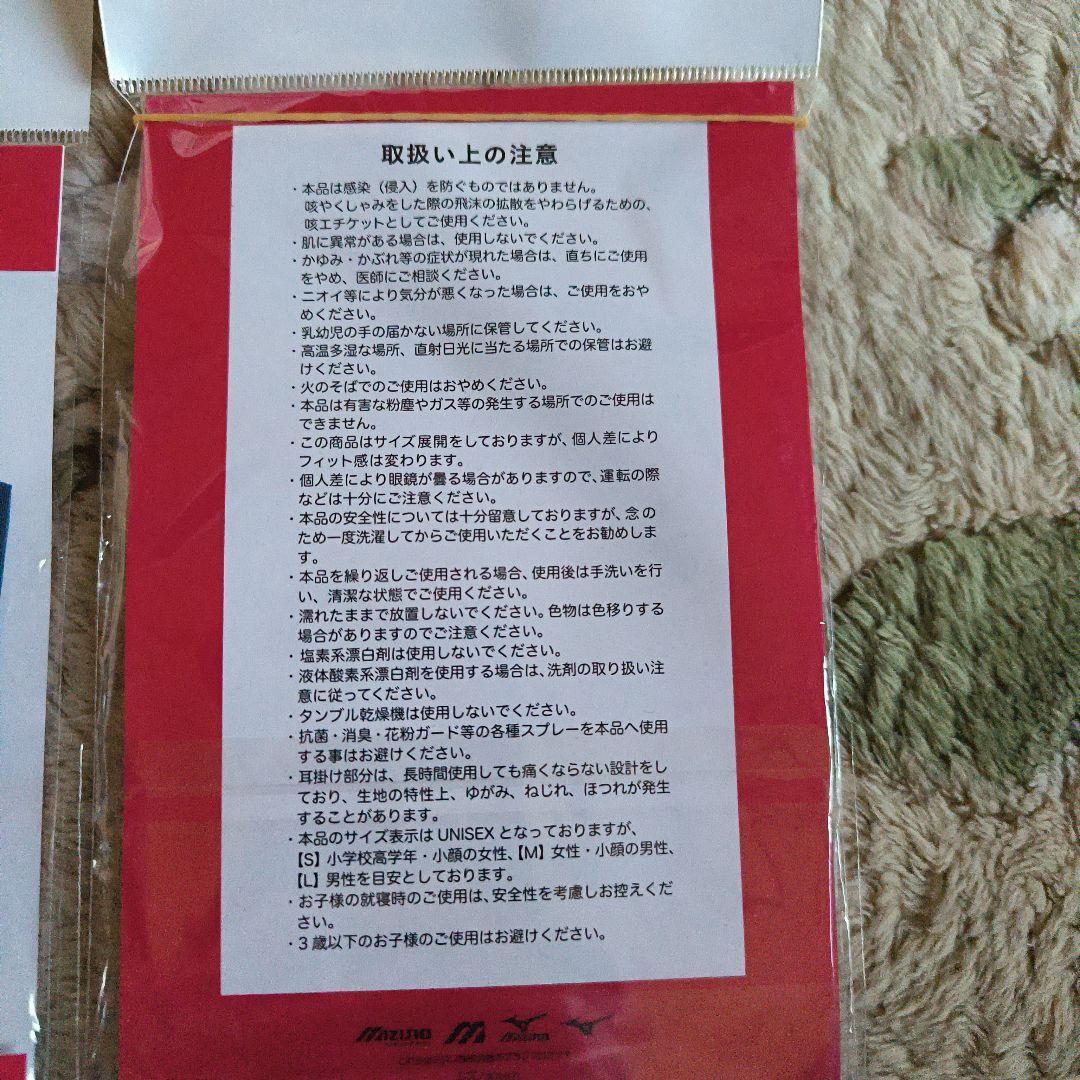 取扱い上の注意
・本品は感染（侵入）を防ぐものではありません。
咳やくしゃみをした際の飛沫の拡散をやわらげるための、
咳エチケットとしてご使用ください。
・肌に異常がある場合は、使用しないでください。
・かゆみ・かぶれ等の症状が現れた場合は、直ちにご使用
をやめ、医師にご相談ください。
・ニオイ等により気分が悪くなった場合は、ご使用をおや
めください。
・乳幼児の手の届かない場所に保管してください。
・高温多湿な場所、直射日光に当たる場所での保管はお避
けください。
・火のそばでのご使用はおやめください。
・本品は有害な粉塵やガス等の発生する場所でのご使用は
できません。
・この商品はサイズ展開をしておりますが、個人差により
フィット感は変わります。
・個人差により眼鏡が曇る場合がありますので、運転の際
などは十分にご注意ください。
・本品の安全性については十分留意しておりますが、念の
ため一度洗濯してからご使用いただくことをお勧めしま
す。
・本品を繰り返しご使用される場合、使用後は手洗いを行
い、清潔な状態でご使用ください。
・濡れたままで放置しないでください。色物は色移りする
場合がありますのでご注意ください。
・塩素系漂白剤は使用しないでください。
・液体酸素系漂白剤を使用する場合は、洗剤の取り扱い注
意に従ってください。
・タンブル乾燥機は使用しないでください。
・抗菌・消臭・花粉ガード等の各種スプレーを本品へ使用
する事はお避けください。
・耳掛け部分は、長時間使用しても痛くならない設計をし
ており、生地の特性上、ゆがみ、ねじれ、ほつれが発生
することがあります。
・本品のサイズ表示は UNISEX となっておりますが、
【S】小学校高学年・小顔の女性、【M】女性・小顔の男性、
【L】男性を目安としております。
・お子様の就寝時のご使用は、安全性を考慮しお控えくだ
さい。
・3 歳以下のお子様のご使用はお避けください。
MIZUNO
Mizuno